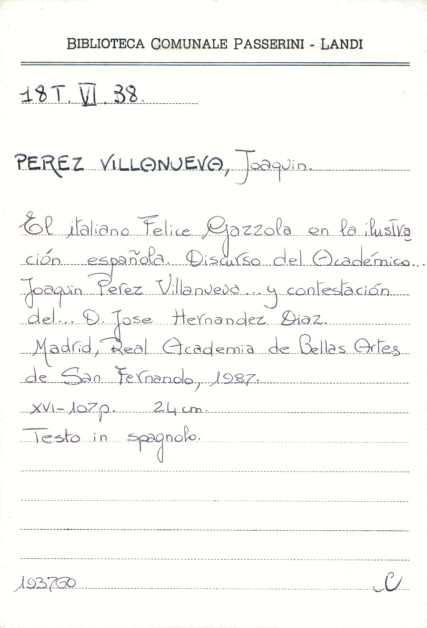 BIBLIOTECA COMUNALE PASSERINI - LANDI
18T. VI. 38.
PEREZ VILLANUEVA, Joaquin.
El italiano Felice Gazzola en la ilustra
ción española. Discurso del Académico...
Joaquin Perez Villanueva... y contestación
del... D. Jose Hernandez Diaz.
Madrid, Real Academia de Bellas Artes
de San Fernando, 1987.
XVI-107p. 24 cm.
Testo in spagnolo.
193760 C